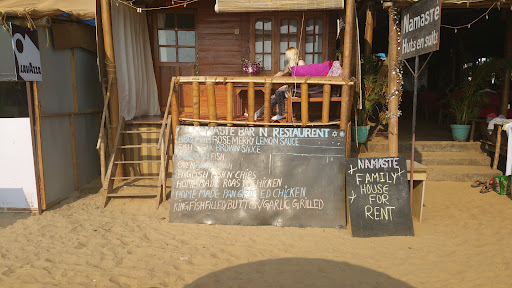 LAVAZZA
NAMASTÉ
NAMASTÉ
Huts en suits
NAMASTE BAR N RESTAURENT
ROSE MERRY LEMON SAUCE
BROWN SAUCE
FISH
ENGLISH FISH N CHIPS
HOME MADE ROAST CHICKEN
HOME MADE PAN GRILLED CHICKEN
KINGFISH FILLED/BUTTER/GARLIC GRILLED
NAMASTE
FAMILY
HOUSE FOR
RENT